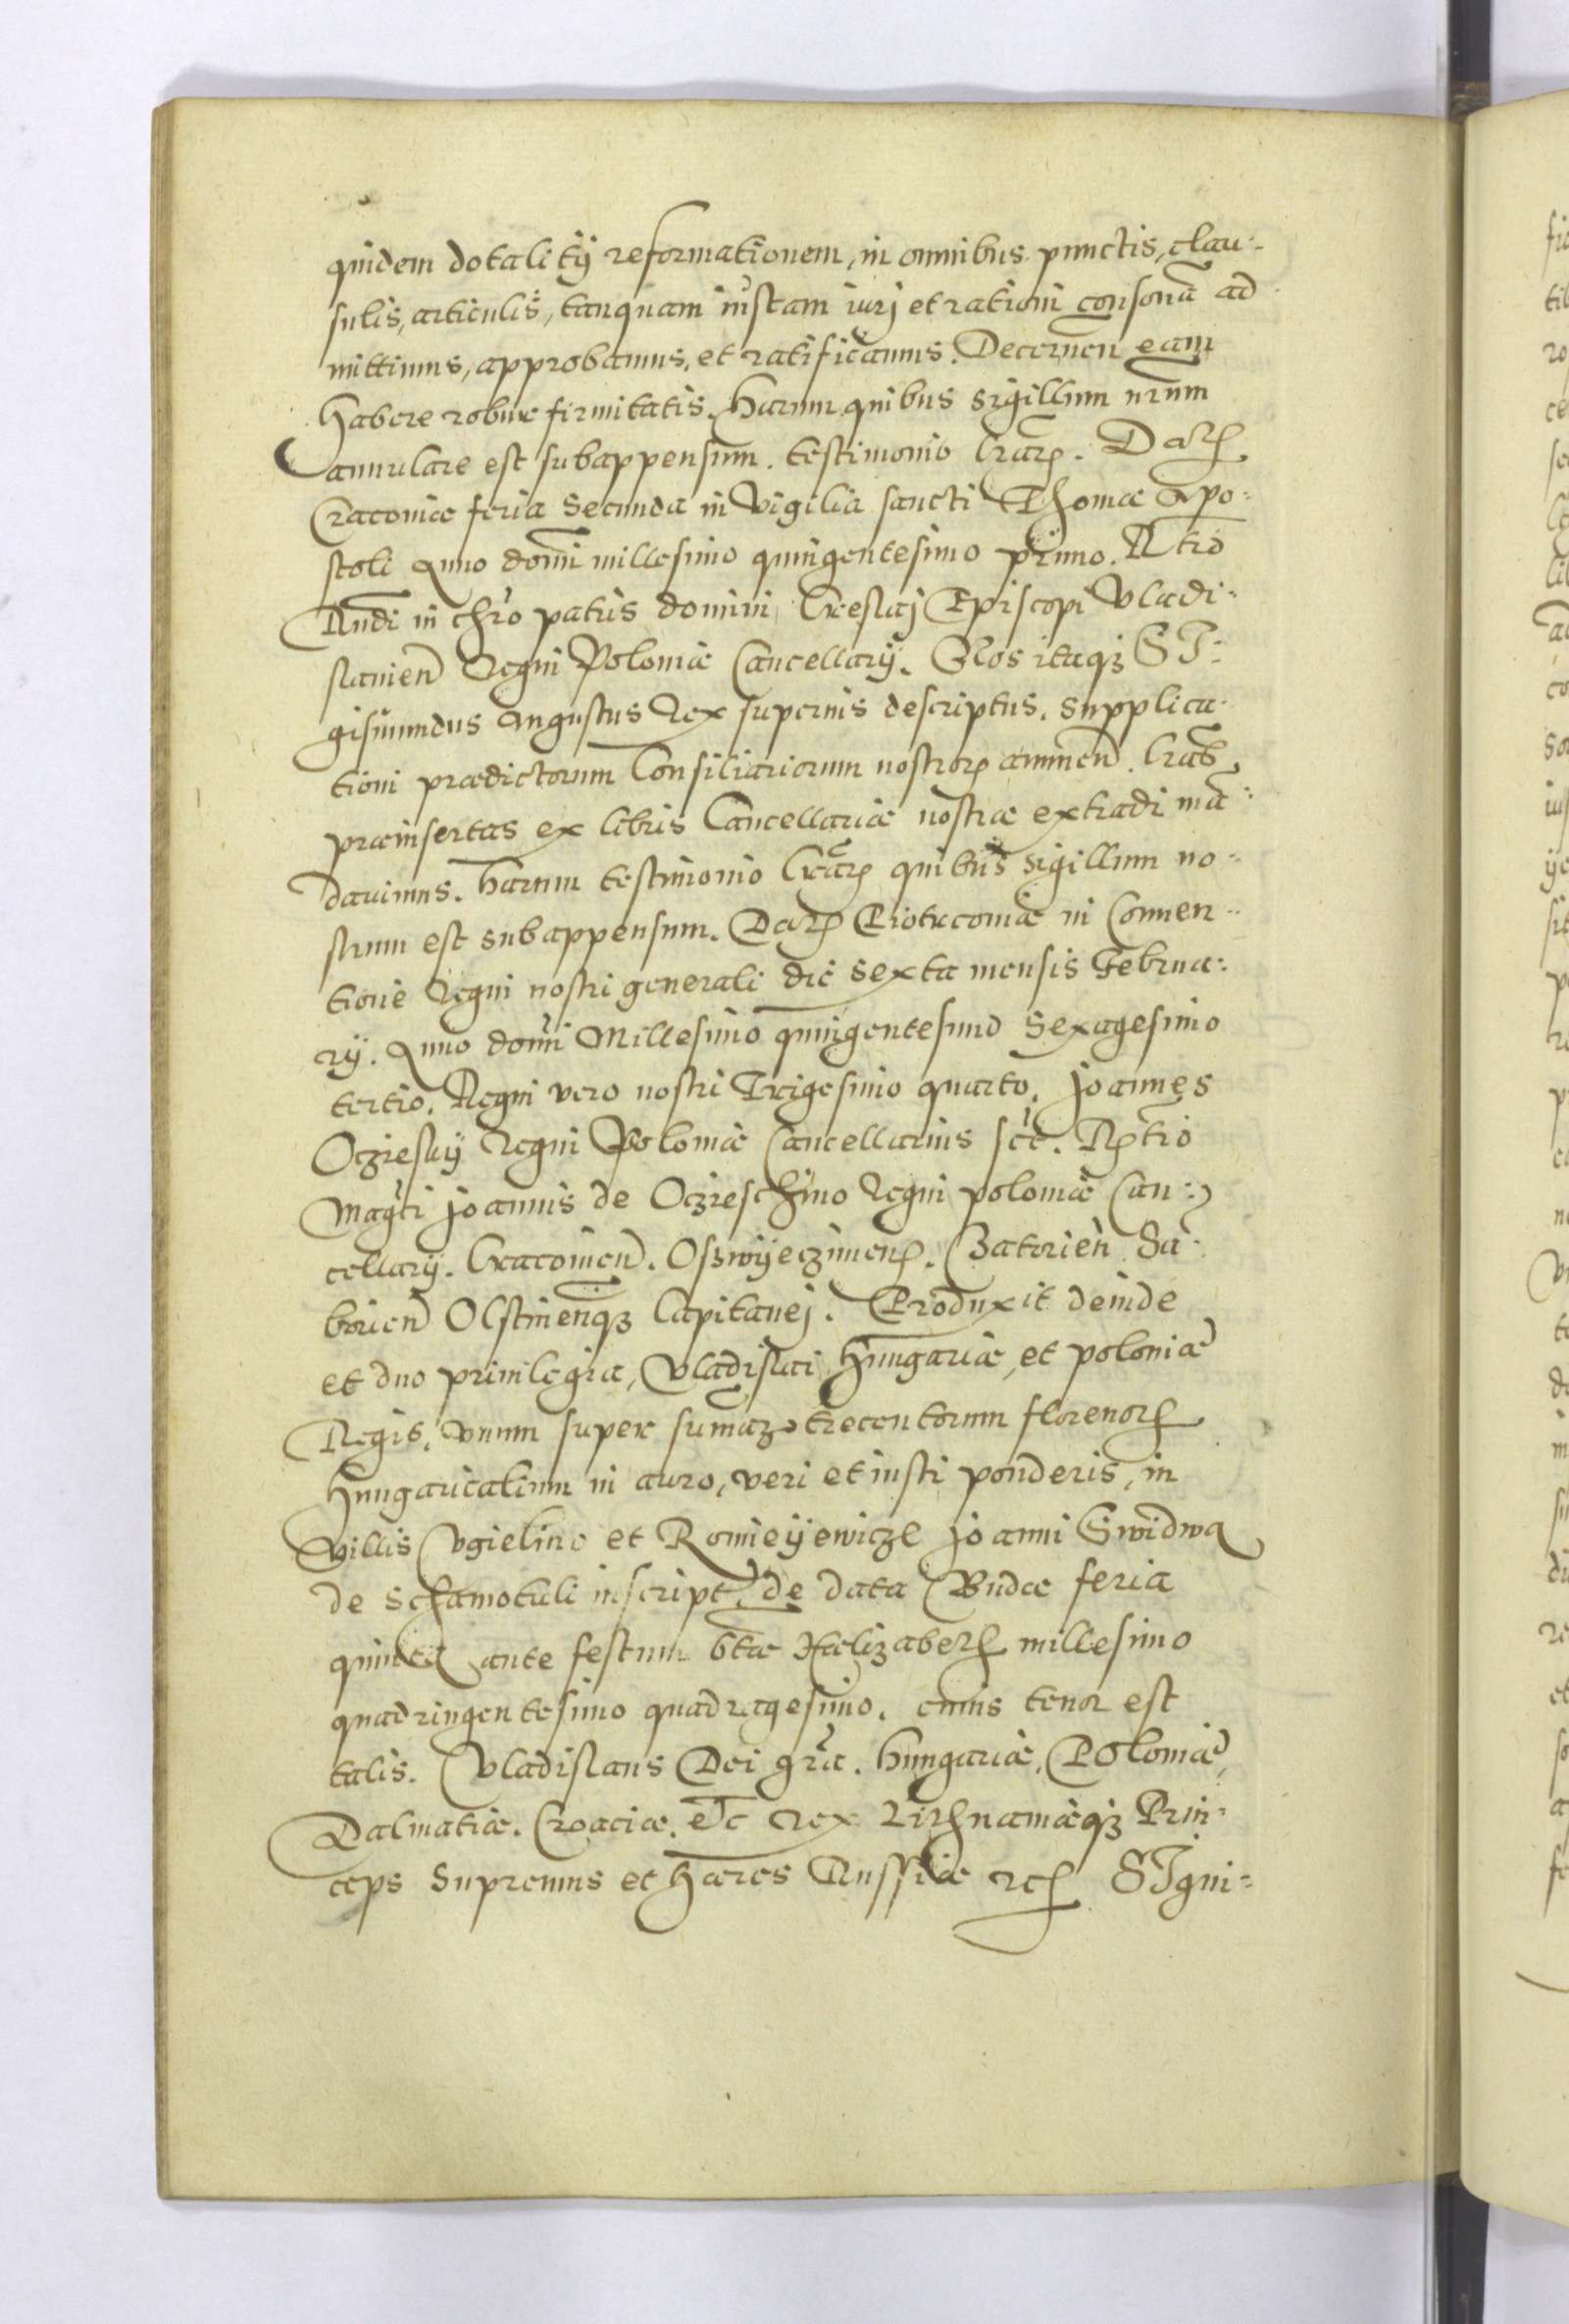 quidem dotality reformationem, in omnibus punctis, clau-
sulis, articulis, tanquam iustam iurj et rationi consonã ad
mittimus, approbamus, et ratificamus. Decernen eam
habere robur firmitatis. Harum quibus sigillum nrum
annulare est subappensum. testimonio lrarꝝ. Datꝝ
Cracoviæ feria secunda in Vigilia sancti Thomæ Apo-
stoli Anno domi millesimo quingentesimo primo. Rtio
Rndi in chro patris domini Creslaj Episcopi Vladi-
slavien Regni Poloniæ Cancellarij. Nos itaqꝫ SI-
gismundus Augustus Rex supernis descriptus. supplica-
tioni prædictorum Consiliariorum nostrorꝝ annuen. lras
præinsertas ex libris Cancellariæ nostræ extradi mã-
davimus. harum testimonio lrarꝝ quibus sigillum no-
strum est subappensum. Datꝝ Piotrcoviæ in Conven-
tione Regni nostri generali die sexta mensis Februa-
rij. Anno domi Millesimo quingentesimo Sexagesimo
tertio. Regni vero nostri Trigesimo quarto. Joannes
Oczieskij Regni Poloniæ Cancellarius sst. Rꝑtio
Magci Joannis de Oczieschino Regni poloniæ Can-
cellarij. Cracovien. Osswyeczimenꝝ. Zatorien Sã-
borien Olstinenqꝫ Capitanej. Produxit deinde
et duo privilegia, Vladislai Hungariæ, et poloniæ
Regis, vnum super sumaꝫ trecentorum florenorꝝ
Hungaricalium in auro, veri et iusti ponderis, in
Villis Vgielino et Romieyewicze Joanni Swidwa
de Schamotuli inscript. de data Budæ feria
quinta ante festum btæ Hælizabetꝝ millesimo
quadringentesimo quadragesimo. cuius tenor est
talis. Vladislaus Dei gra. Hungariæ, Poloniæ,
Dalmatiæ. Croaciæ. etc rex Litꝝnaniæqꝫ Prin-
ceps Supremus et hæres Russiæ rcꝝ SIgni-